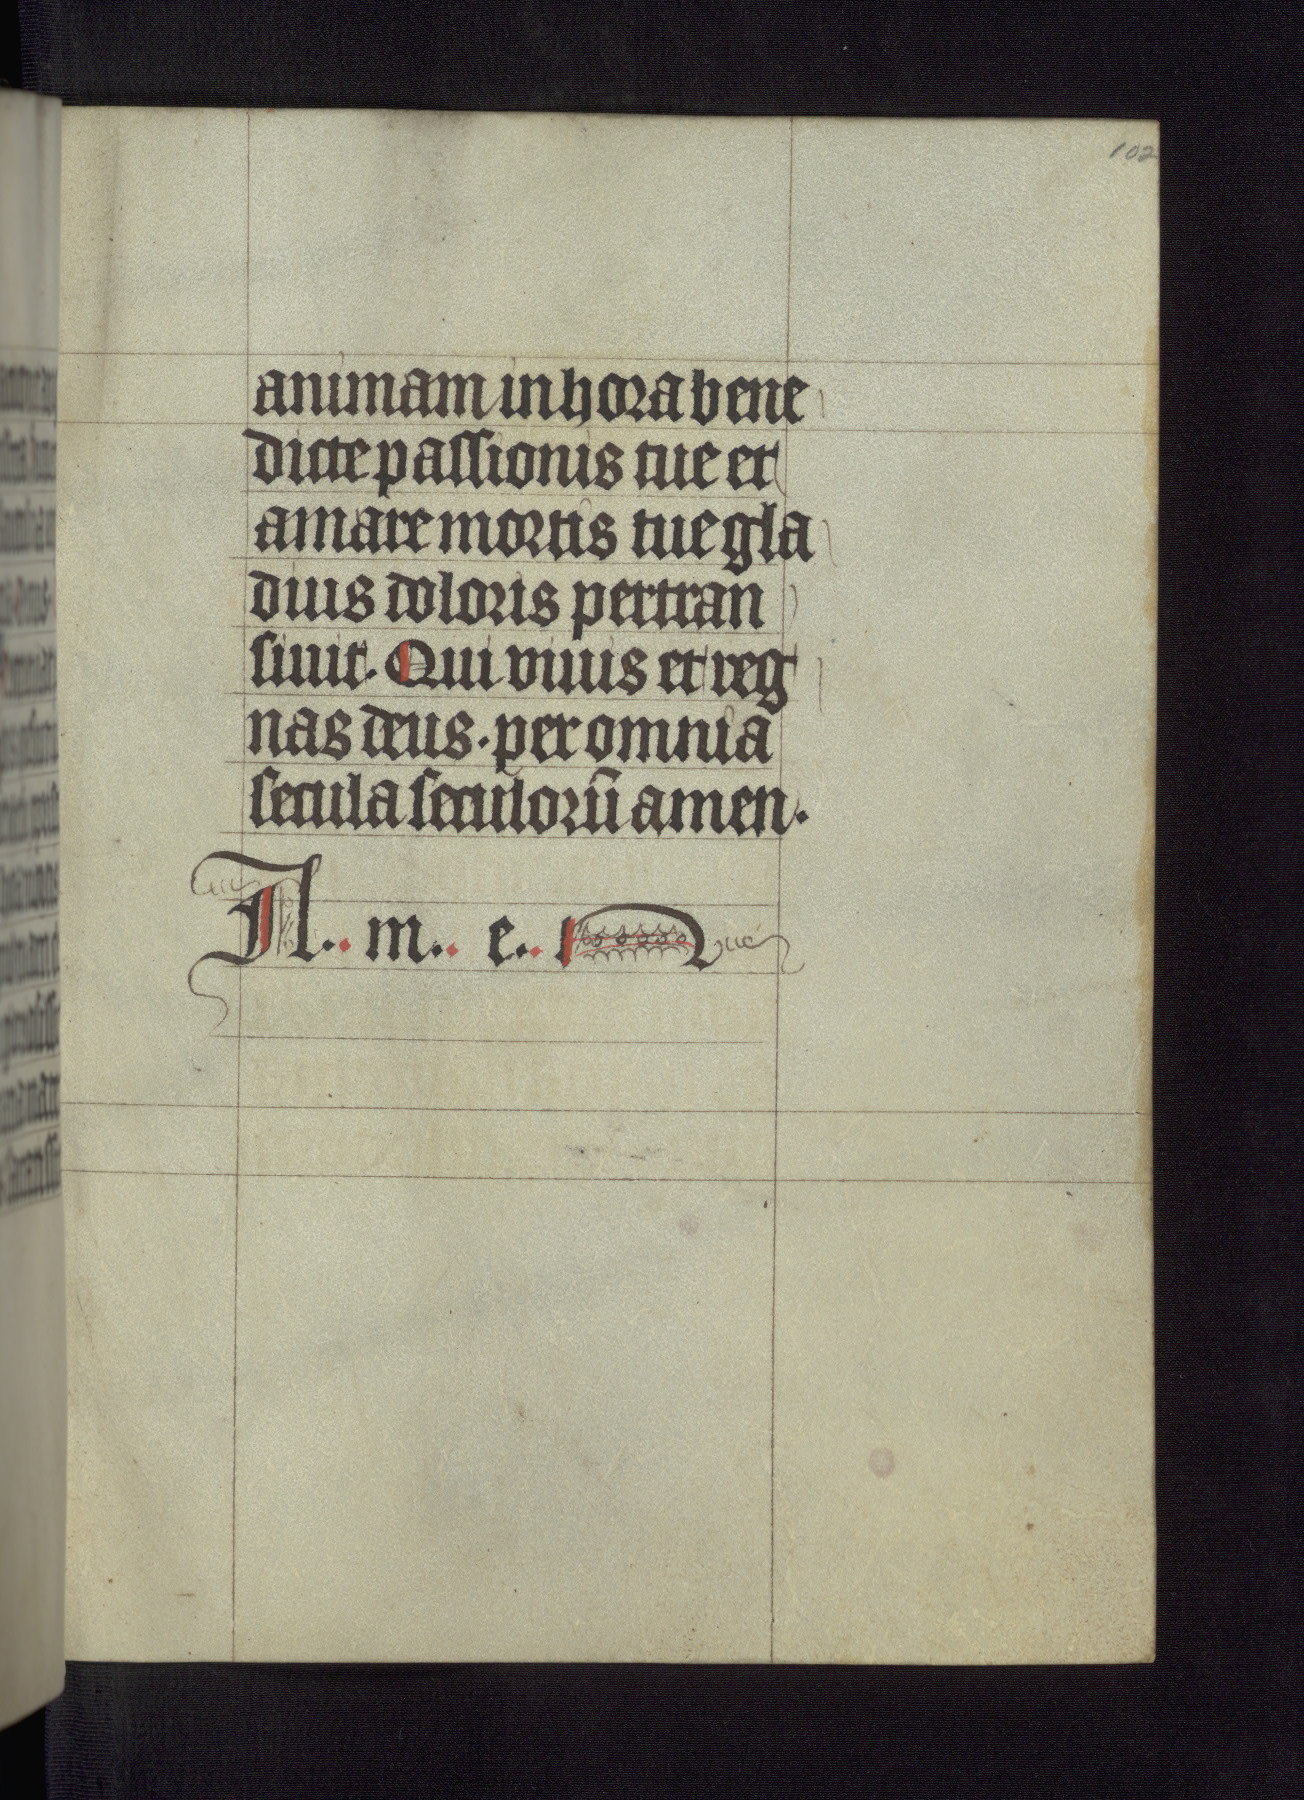 102
animam in hora bene
dicte passionis tue et
amare mortis tue gla
dius doloris pertran
siuit. Qui viuis et reg
nas deus. per omnia
secula seculorū amen.
A.. m.. e.. n